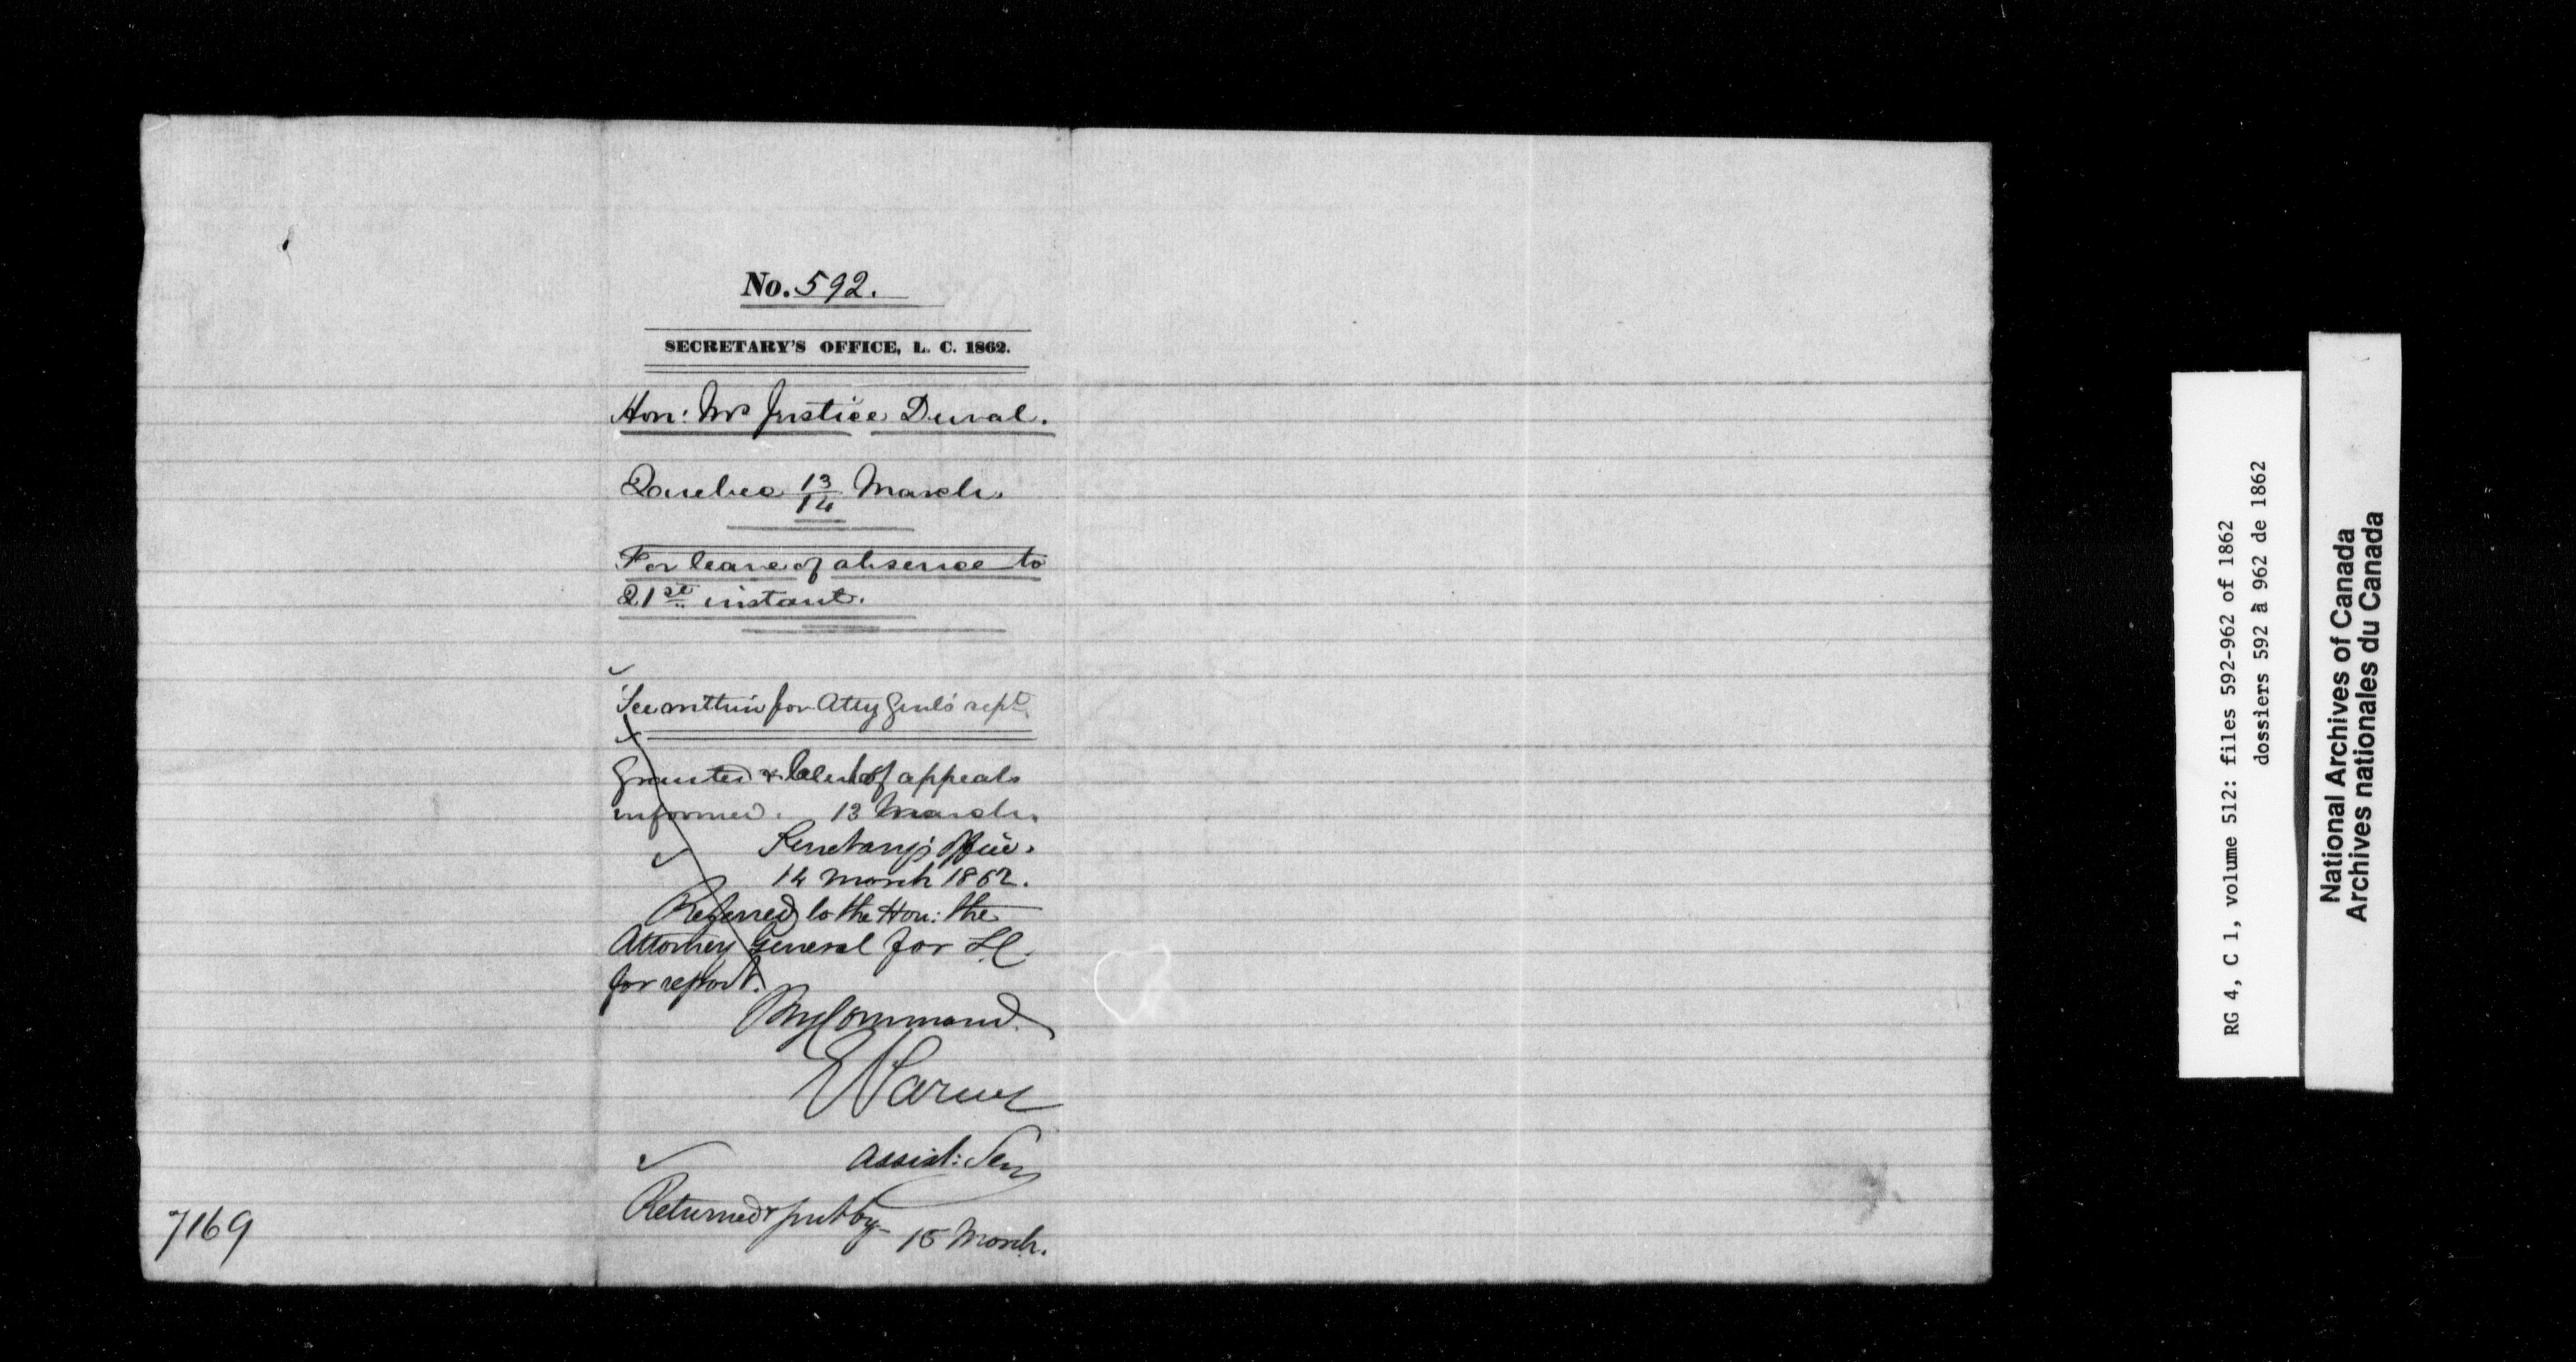 No. 592.
SECRETARY'S OFFICE, L. C. 1862.
Hon: Mr Justice Duval.
Quebec 13/14 March.
For leave of absence to
21st instant.
See within for Atty Genl's rept
Granted & Clerk of appeals
informed. 13 March.
Secretary's Office.
14 March 1862.
Referred to the Hon: the
Attorney General for L.C.
for report.
By Command.
Assist: Secy
Returned & put by
15 March.
7169
RG 4, C 1, volume 512: files 592-962 of 1862
dossiers 592 à 962 de 1862
National Archives of Canada
Archives nationales du Canada